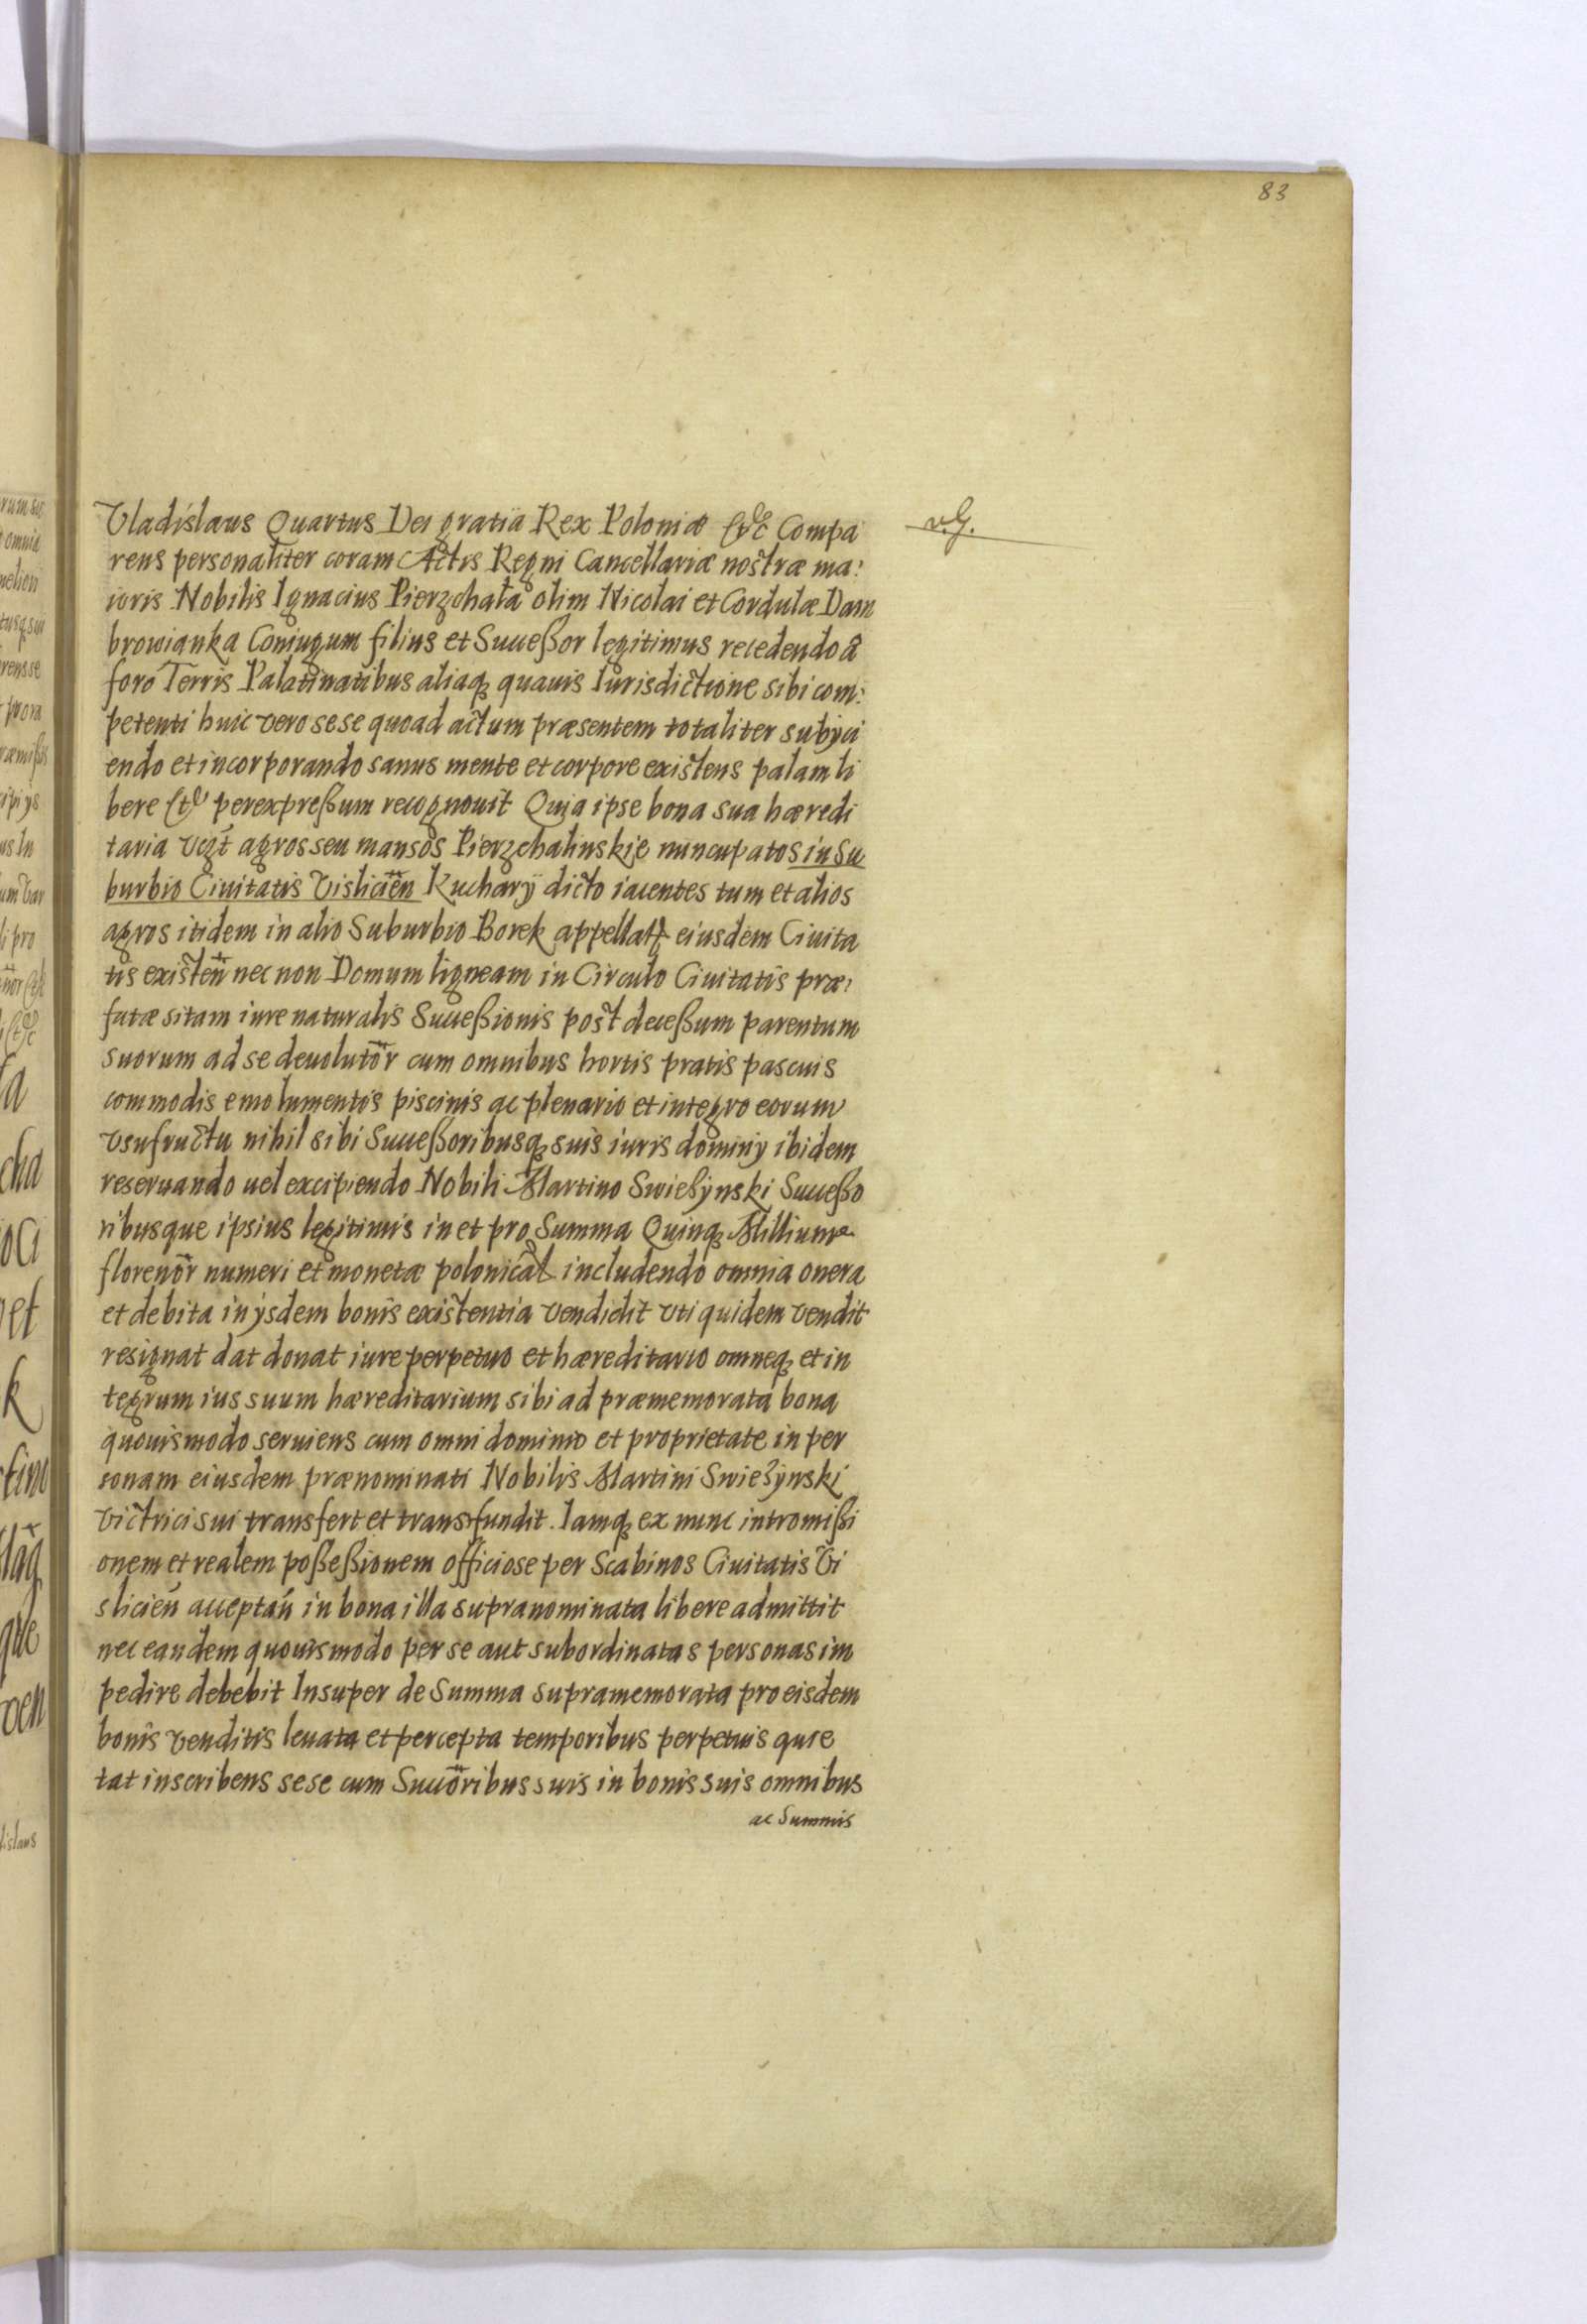 83
Vladislaus Quartus Dei gratia Rex Poloniæ &c Compa
v.G.
rens personaliter coram Actis Regni Cancellariæ nostræ ma:
ioris Nobilis Ignacius Pierzchała olim Nicolai et Cordulæ Dam
browianka Coniugum filius et Suceßor legitimus recedendo à
foro Terris Palatinatibus aliaq quauis Iurisdictione sibi com:
petenti huic vero sese quoad actum præsentem totaliter subÿci
endo et incorporando sanus mente et corpore existens palam li
bere & perexpreßum recognouit Quia ipse bona sua hæredi
taria vigt agros seu mansos Pierzchalinskie nuncupatos in Su
burbio Ciuitatis Vislicien Kucharÿ dicto iacentes tum et alios
agros itidem in alio Suburbio Borek appellat eiusdem Ciuita
tis existen nec non Domum ligneam in Circulo Ciuitatis præ:
fatæ sitam iure naturalis Succeßionis post deceßum parentum
suorum ad se deuolutor cum omnibus hortis pratis pascuis
commodis emolumentis piscinis ac plenario et integro eorum
vsufructu nihil sibi Succeßoribusq suis iuris dominÿ ibidem
reseruando uel excipiendo Nobili Martino Swieżynski Succeßo
ribusque ipsius legitimis in et pro Summa Quinq Millium
florenor numeri et monetæ polonical includendo omnia onera
et debita in ÿsdem bonis existentia vendidit vti quidem vendit
resignat dat donat iure perpetuo et hæreditario omneq et in
tegrum ius suum hæreditarium sibi ad præmemorata bona
quouismodo seruiens cum omni dominio et proprietate in per
sonam eiusdem prænominati Nobilis Martini Swieżynski
victrici sui transfert et transfundit. Iamq ex nunc intromißi
onem et realem poßeßionem officiose per Scabinos Ciuitatis Vi
slicień acceptań in bona illa supranominata libere admittit
nec eandem quouismodo per se aut subordinatas personas im
pedire debebit Insuper de Summa supramemorata pro eisdem
bonis venditis leuata et percepta temporibus perpetuis quie
tat inscribens sese cum Succoribus suis in bonis suis omnibus
ac Summis